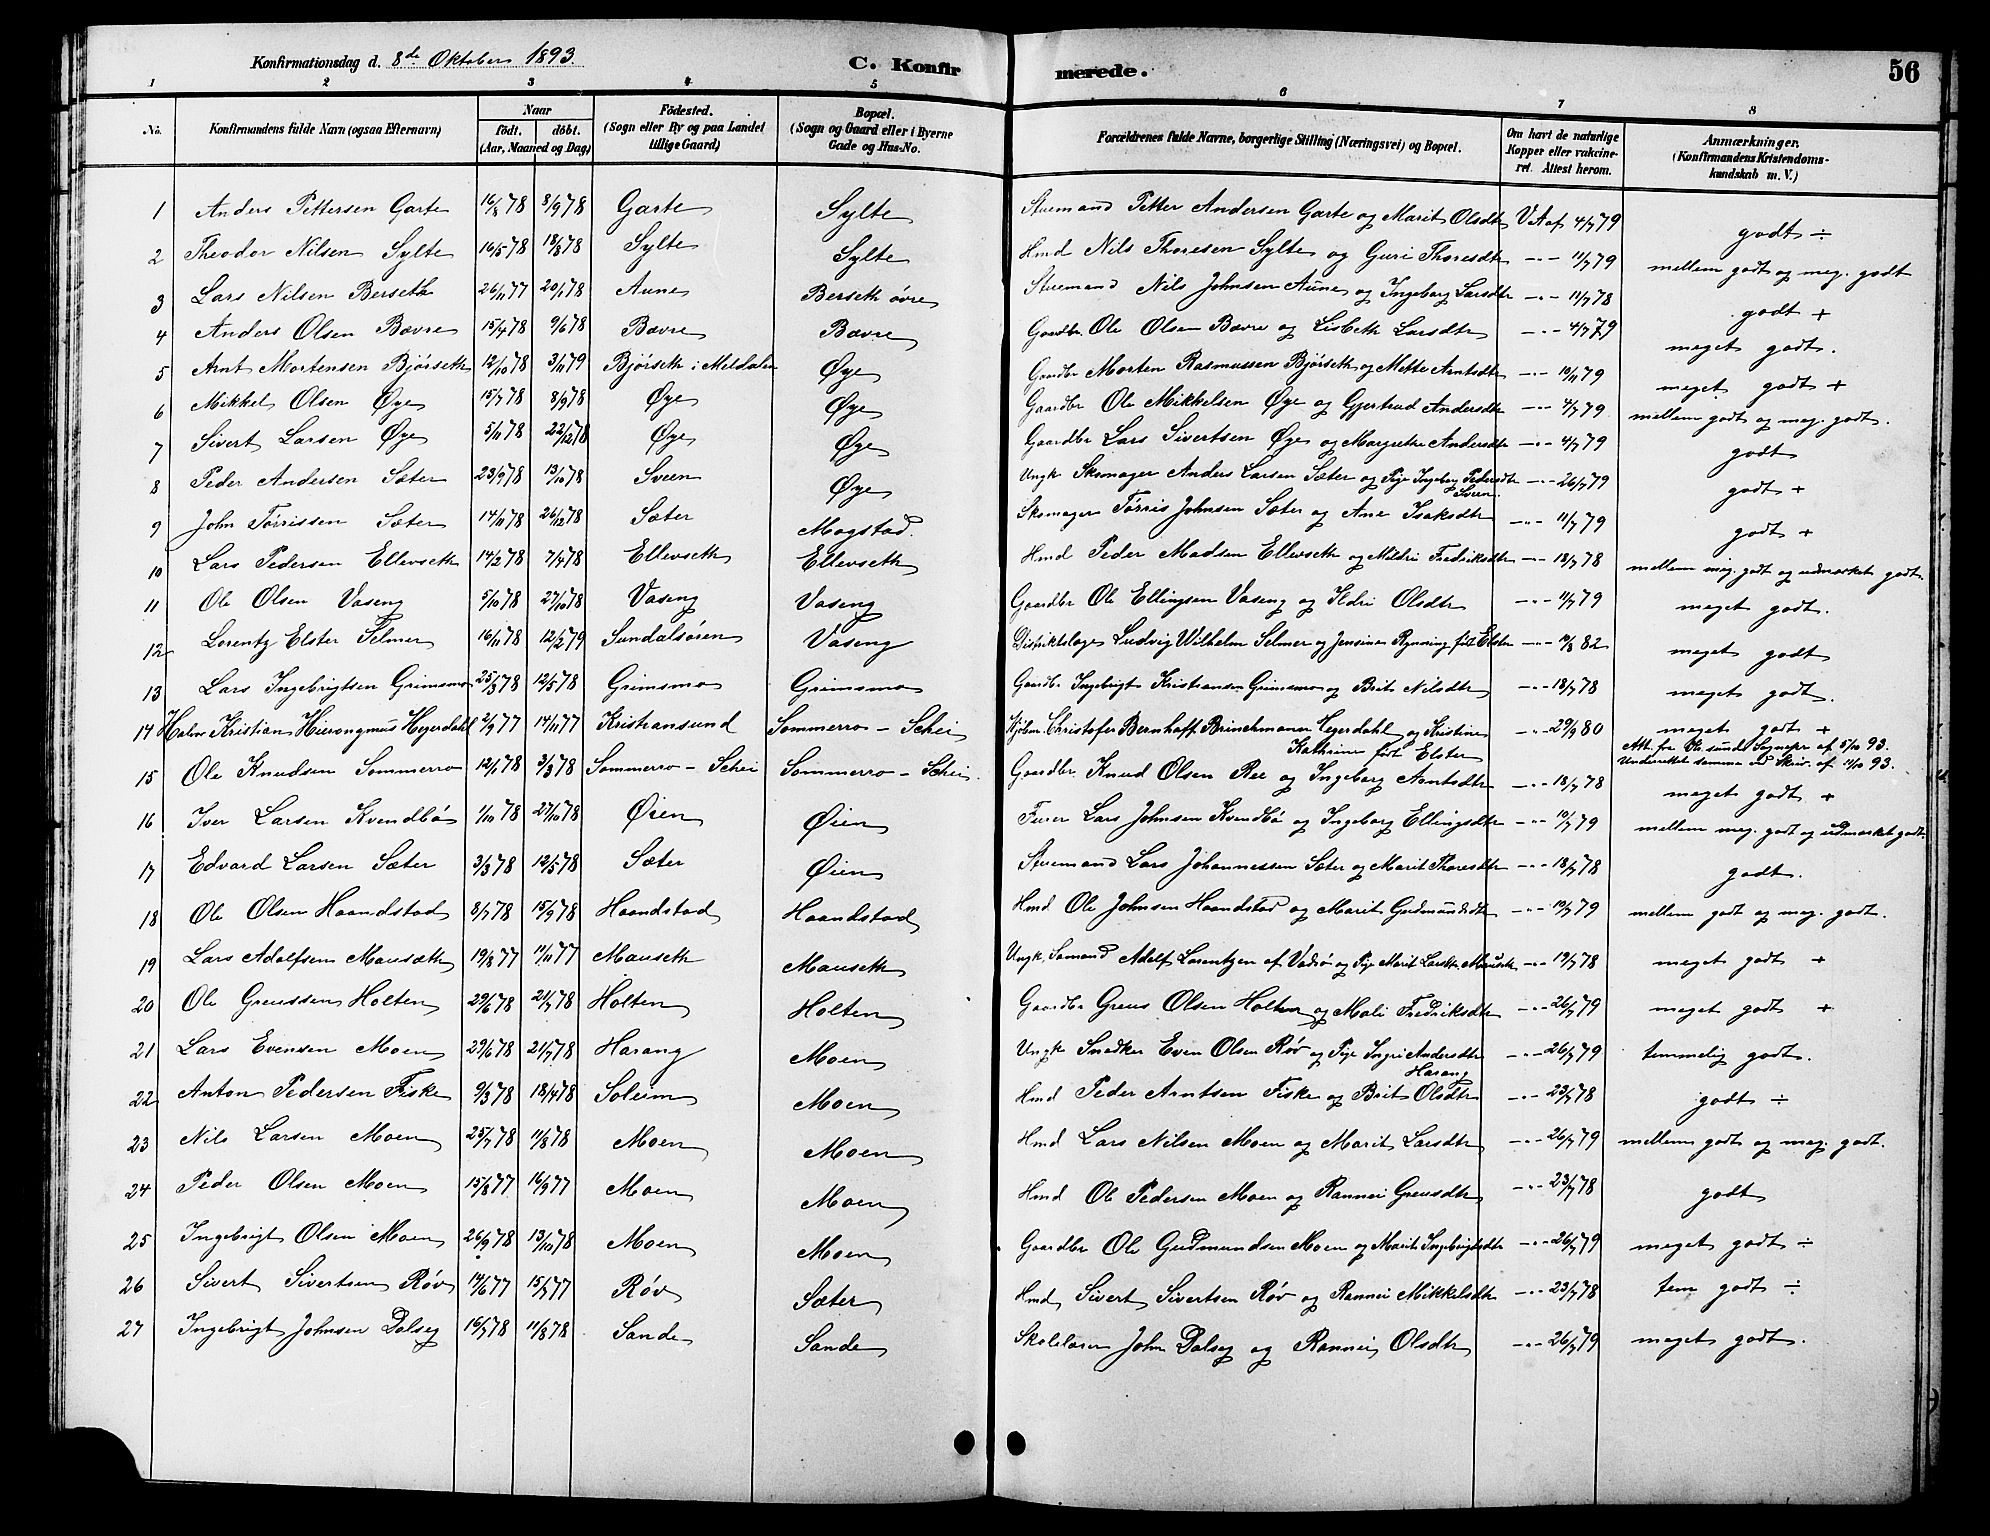 Konfirmationsdag d. 8de Oktober 1893. C. Konfirmerede. 56
1 2 3 4 5 6 7 8
No. Konfirmandens fulde Navn (ogsaa Efternavn) Naar födt. döbt. (Aar, Maaned og Dag) Födested. (Sogn eller By og paa Landet tillige Gaard) Bopæl. (Sogn og Gaard eller i Byerne Gade og Hus-No. Forældrenes fulde Navne, borgerlige Stilling (Næringsvei) og Bopæl. Om havt de naturlige Kopper eller vakcineret. Attest herom. Anmærkninger. (Konfirmandens Kristendomskundskab m. V.)
1 Anders Pettersen Garte 16/8 78 8/9 78 Garte Sylte Stuemand Petter Andersen Garte og Marit Olsdtr V. At af 4/7 79 godt ÷
2 Theodor Nilsen Sylte 16/5 78 18/8 78 Sylte Sylte Hmd Nils Thoresen Sylte og Guri Thoresdtr -"- 11/7 79 mellem godt og meg. godt
3 Lars Nilsen Berseth 26/11 77 20/1 78 Aune Berseth øvre Stuemand Nils Johnsen Aune og Ingeborg Larsdtr -"- 11/7 78 godt +
4 Anders Olsen Bævre 15/4 78 9/6 78 Bævre Bævre Gaardbr Ole Olsen Bævre og Lisbeth Larsdtr -"- 4/7 79 meget godt.
5 Arnt Mortensen Bjørseth 12/10 78 3/11 79 Bjørseth i Meldalen Øye Gaardbr Morten Rasmussen Bjørseth og Mette Arntsdtr -"- 10/11 79 meget godt +
6 Mikkel Olsen Øye 15/7 78 8/9 78 Øye Øye Gaardbr Ole Mikkelsen Øye og Gjertrud Andersdtr -"- 4/7 79 mellem godt og meg. godt.
7 Sivert Larsen Øye 5/11 78 22/12 78 Øye Øye Gaardbr Lars Sivertsen Øye og Margrethe Andersdtr -"- 4/7 79 godt
8 Peder Andersen Sæter 23/9 78 13/10 78 Sveen Øye Ungk Skomager Anders Larsen Sæter og Pige Ingeborg Pedersdtr Sveen -"- 26/7 79 godt +
9 John Tørrissen Sæter 14/11 78 26/12 78 Sæter Mogstad. Skomager Tørris Johnsen Sæter og Ane Isaksdtr -"- 11/7 79 godt +
10 Lars Pedersen Ellevseth 14/2 78 7/4 78 Ellevseth Ellevseth Hmd Peder Madsen Ellevseth og Mildri Fredriksdtr -"- 18/7 78 mellem meg. godt og udmærket godt.
11 Ole Olsen Vaseng 5/10 78 27/10 78 Vaseng Vaseng Gaardbr Ole Ellingsen Vaseng og Ildri Olsdtr -"- 11/7 79 meget godt.
12 Lorentz Elster Selmer 16/11 78 12/2 79 Sundalsøren Vaseng Distriktslæge Ludvig Wilhelm Selmer og Jensine Rynning født Elster -"- 10/8 82 meget godt
13 Lars Ingebrigtsen Grimsmo 25/3 78 12/5 78 Grimsmo Grimsmo Gaardbr Ingebrigt Kristiansen Grimsmo og Brit Nilsdtr -"- 18/7 78 meget godt.
14 Halvor Kristian Hieronymus Heyerdahl 2/9 77 14/11 77 Kristiansund Sommerro - Schei Kjøbm. Christofer Bernhoff Brinchmann Heyerdahl og Kristine Kathrine født Elster -"- 29/9 80 meget godt +
Att. fr. Kr.sunds Sognepr. af 5/10 93. Underrettet samme ved Skriv. af 11/10 93.
15 Ole Knudsen Sommerro 12/1 78 3/3 78 Sommerro - Schei Sommerro - Schei. Gaardbr. Knud Olsen Ree og Ingeborg Arntsdtr -"- 18/7 78 meget godt +
16 Iver Larsen Kvendbø 1/10 78 27/10 78 Øien Øien Furer Lars Johnsen Kvendbø og Ingeborg Ellingsdtr -"- 10/7 79 mellem meg. godt og udmærket godt.
17 Edvard Larsen Sæter 3/3 78 12/5 78 Sæter Øien Stuemand Lars Johannessen Sæter og Marit Thoresdtr -"- 18/7 78 godt.
18 Ole Olsen Haandstad 8/7 78 15/9 78 Haandstad Haandstad Hmd Ole Johnsen Haandstad og Marit Gudmundsdtr -"- 10/7 79 mellem godt og meg. godt.
19 Lars Adolfsen Mauseth 19/8 77 11/11 77 Mauseth Mauseth Ungk. Sømand Adolf Lorentzen af Vadsø og Pige Marit Larsdtr Mauseth -"- 19/7 78 meget godt +
20 Ole Greussen Holten 29/6 78 21/7 78 Holten Holten Gaardbr Greus Olsen Holten og Mali Fredriksdtr -"- 26/7 79 meget godt +
21 Lars Evensen Moen 29/6 78 21/7 78 Harang Moen Ungk Snedker Even Olsen Røv og Pige Ingri Andersdtr Harang -"- 26/7 79 temmelig godt.
22 Anton Pedersen Fiske 9/3 78 18/4 78 Soleim Moen Hmd Peder Arntsen Fiske og Brit Olsdtr -"- 23/7 78 godt ÷
23 Nils Larsen Moen 25/7 78 11/8 78 Moen Moen Hmd Lars Nilsen Moen og Marit Larsdtr -"- 26/7 79 mellem godt og meg. godt.
24 Peder Olsen Moen 15/8 77 16/9 77 Moen Moen Hmd Ole Pedersen Moen og Rannei Greusdtr -"- 23/7 78 godt
25 Ingebrigt Olsen Moen 26/9 78 13/10 78 Moen Moen Gaardbr Ole Gudmundsen Moen og Marit Ingebrigtsdtr -"- 26/7 79 meget godt ÷
26 Sivert Sivertsen Røv 14/6 77 15/7 77 Røv Sæter Hmd Sivert Sivertsen Røv og Rannei Mikkelsdtr -"- 23/7 78 tem godt ÷
27 Ingebrigt Johnsen Dalseg 16/7 78 11/8 78 Sande Sande Skolelærer John Dalseg og Rannei Olsdtr -"- 26/7 79 meget godt.